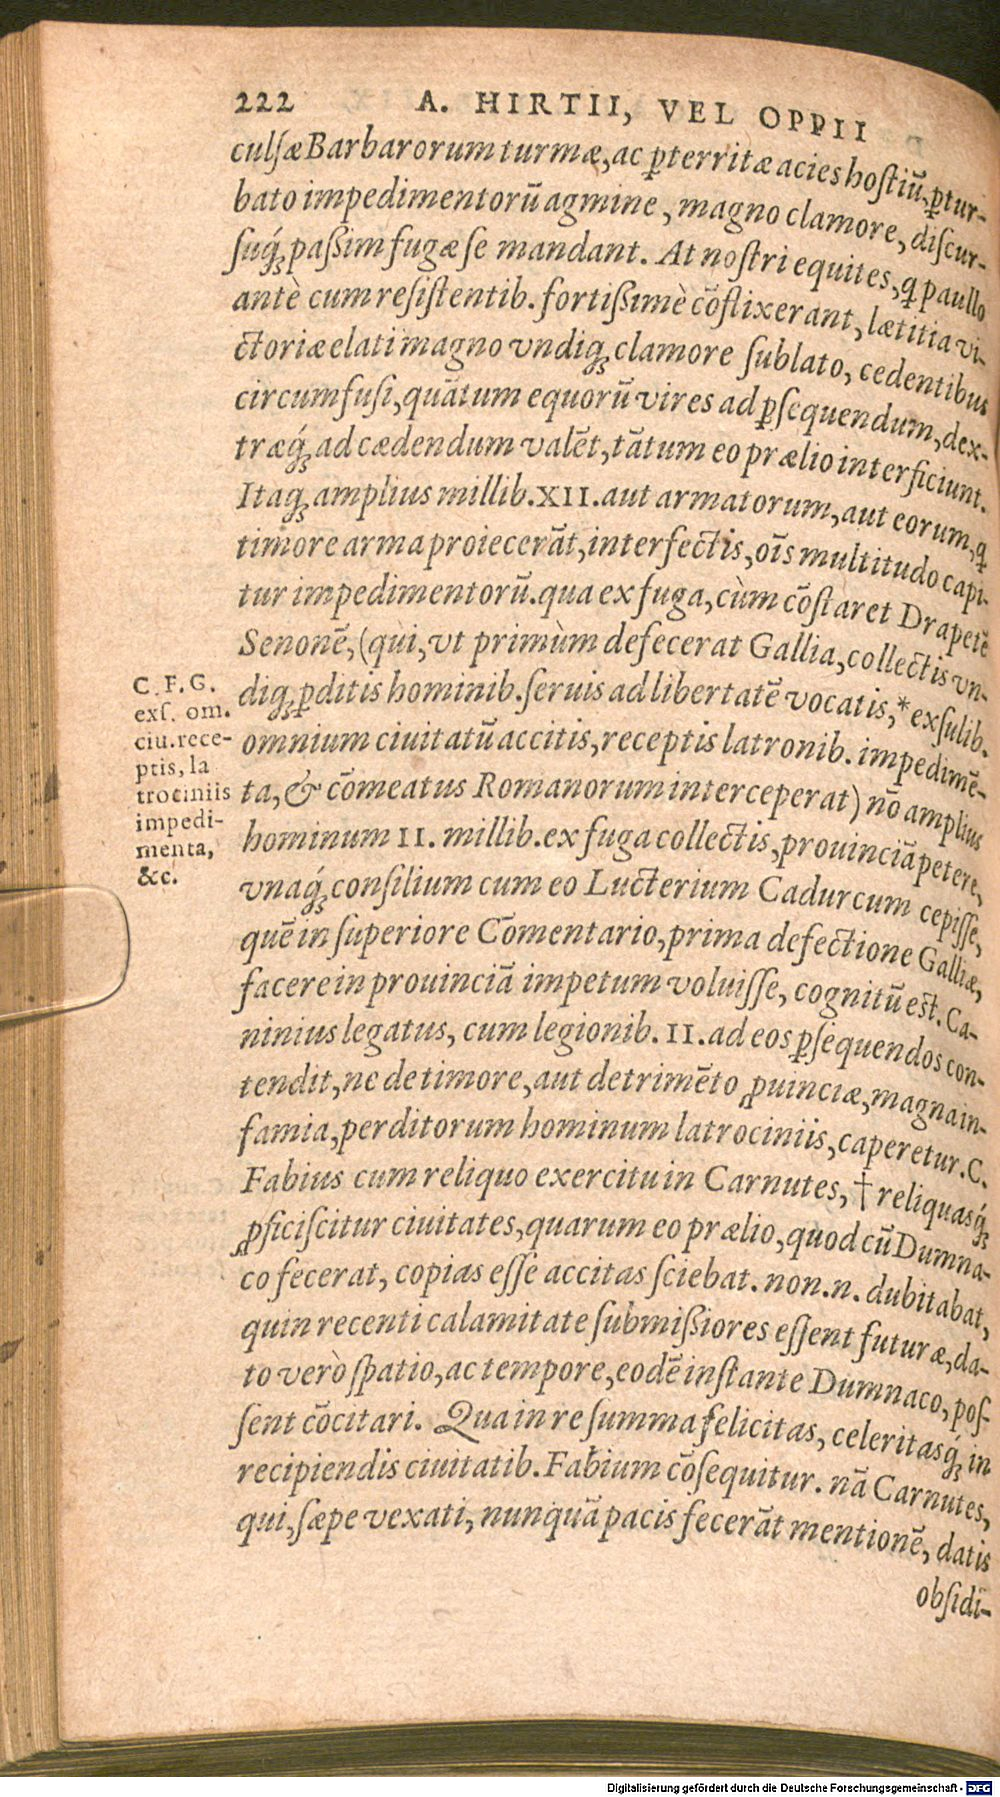 222 A. HIRTII, VEL OPPII
culſæ Barbarorum turmæ, ac ꝑterritæ acies hoſtiũ, ꝑtur-
bato impedimentorũ agmine, magno clamore, diſcur-
ſuq́; paſſim fugæ ſe mandant. At noſtri equites, ꝗ paullo
antè cum reſiſtentib. fortiſſimè cõflixerant, lætitia vi-
ctoriæ elati magno vndiq; clamore ſublato, cedentibus
circumfuſi, quãtum equorũ vires ad ꝑſequendum, dex-
træq́; ad cædendum valẽt, tãtum eo prælio interficiunt.
Itaq; amplius millib. XII. aut armatorum, aut eorum, ꝗ
timore arma proiecerãt, interfectis, oĩs multitudo capi-
tur impedimentorũ. qua ex fuga, cùm cõſtaret Drapetẽ
Senonẽ, (qui, vt primùm defecerat Gallia, collectis vn-
diq; ꝑditis hominib. ſeruis ad libertatẽ vocatis, * exſulib.
omnium ciuitatũ accitis, receptis latronib. impedimẽ-
ta, & cõmeatus Romanorum interceperat) nõ amplius
hominum II. millib. ex fuga collectis, prouinciã petere,
vnaq́; conſilium cum eo Lucterium Cadurcum cepiſſe,
quẽ in ſuperiore Cõmentario, prima defectione Galliæ,
facere in prouinciã impetum voluiſſe, cognitũ eſt. Ca-
ninius legatus, cum legionib. II. ad eos ꝑſequendos con-
tendit, ne de timore, aut detrimẽto ꝓuinciæ, magna in-
famia, perditorum hominum latrociniis, caperetur. C.
Fabius cum reliquo exercitu in Carnutes, † reliquasq́;
ꝓficiſcitur ciuitates, quarum eo prælio, quod cũ Dumna-
co fecerat, copias eſſe accitas ſciebat. non. n. dubitabat,
quin recenti calamitate ſubmiſſiores eſſent futuræ, da-
to verò ſpatio, ac tempore, eodẽ inſtante Dumnaco, poſ-
ſent cõcitari. Qua in re ſumma felicitas, celeritasq́; in
recipiendis ciuitatib. Fabium cõſequitur. nã Carnutes,
qui, ſæpe vexati, nunquã pacis fecerãt mentionẽ, datis
obſidi-
C. F. G.
exſ. om.
ciu. rece-
ptis, la
trociniis
impedi-
menta,
&c.
Digitalisierung gefördert durch die Deutsche Forschungsgemeinschaft - DFG